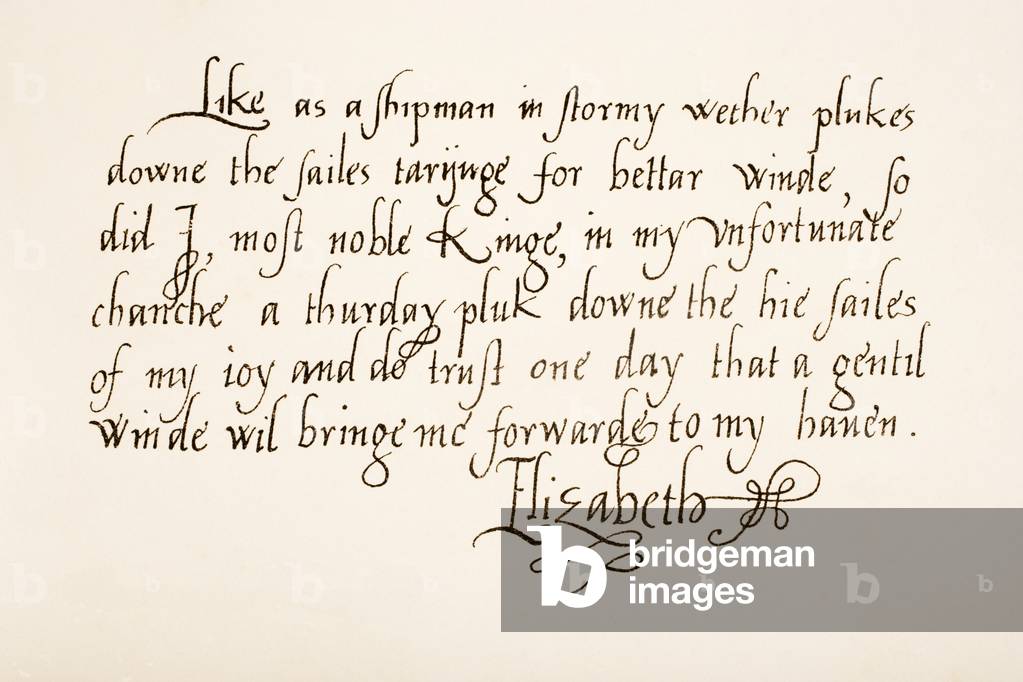 Like as a ſhipman in ſtormy wether plukes
downe the ſailes tarijnge for bettar winde, ſo
did I, moſt noble Kinge, in my vnfortunate
chanche a thurday pluk downe the hie ſailes
of my ioy and do truſt one day that a gentil
winde wil bringe me forwarde to my hauen.
Elizabeth
bridgeman
images